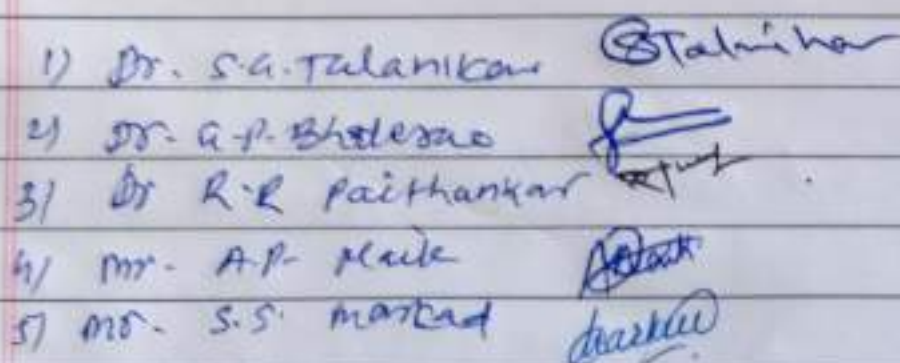 1) Dr. S.G. Talanikar STalnikar
2) Dr. G.P. Bhalerao
3) Dr R.R Paithankar
4) Mr. A.P. Naik
5) Mr. S.S. Markad